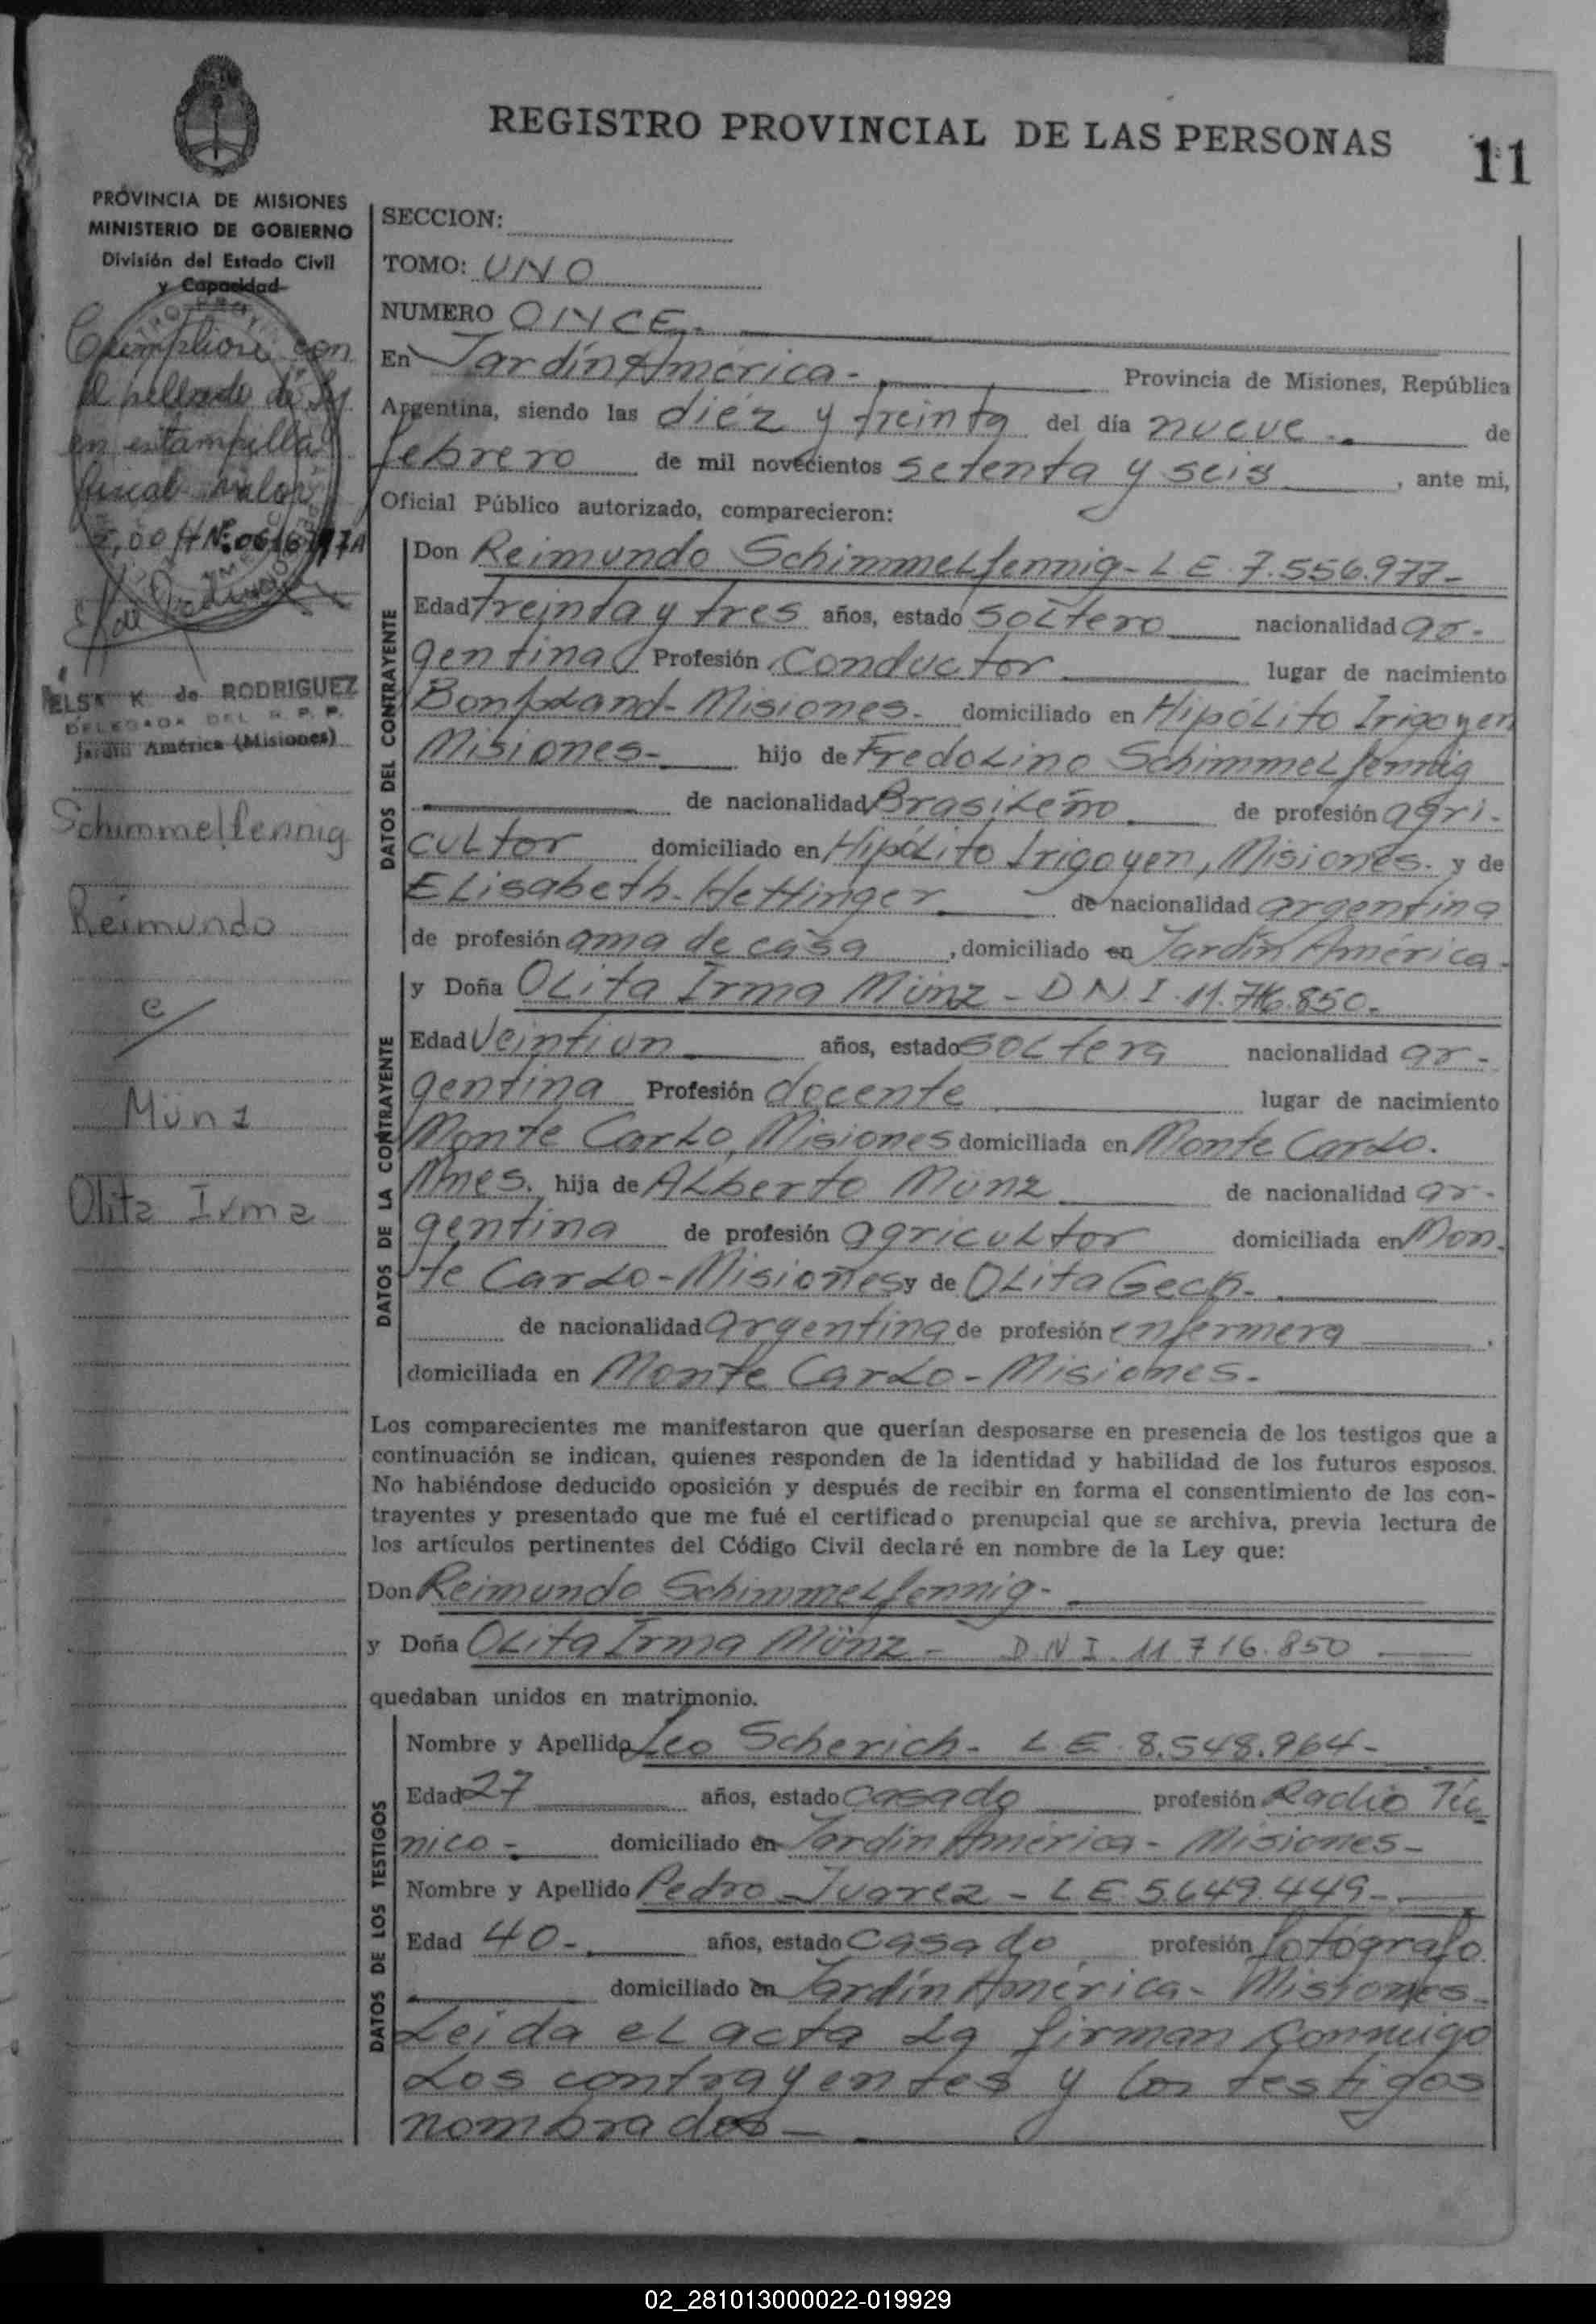 REGISTRO PROVINCIAL DE LAS PERSONAS
11
PROVINCIA DE MISIONES
MINISTERIO DE GOBIERNO
División del Estado Civil
y Capacidad
Cumplióse con
el sellado de Ley
en estampilla
fiscal valor
ELSA K de RODRIGUEZ
DELEGADA DEL R. P. P.
Jardín América (Misiones)
Schimmelfennig
Reimundo
c/
Münz
Olita Irma
SECCION:
TOMO: UNO
NUMERO ONCE.
En Jardín América - Provincia de Misiones, República
Argentina, siendo las diéz y treinta del día nueve . de
febrero de mil novecientos setenta y seis , ante mi,
Oficial Público autorizado, comparecieron:
DATOS DEL CONTRAYENTE
Don Reimundo Schimmelfennig - L E. 7.556.977 -
Edad treinta y tres años, estado soltero nacionalidad ar-
gentina Profesión Conductor lugar de nacimiento
Bonpland - Misiones. domiciliado en Hipólito Irigoyen
Misiones - hijo de Fredolino Schimmelfennig
de nacionalidad Brasileño de profesión agri-
cultor domiciliado en Hipólito Irigoyen, Misiones. y de
Elisabeth Hettinger de nacionalidad argentina
de profesión ama de casa , domiciliado en Jardín América.
DATOS DE LA CONTRAYENTE
y Doña Olita Irma Münz - D N. I. 11.716.850.
Edad Veintiun años, estado soltera nacionalidad ar-
gentina Profesión docente lugar de nacimiento
Monte Carlo, Misiones domiciliada en Monte Carlo.
Mnes. hija de Alberto Münz de nacionalidad ar-
gentina de profesión agricultor domiciliada en Mon-
te Carlo - Misiones y de Olita Geck.
de nacionalidad argentina de profesión enfermera ,
domiciliada en Monte Carlo - Misiones.
Los comparecientes me manifestaron que querían desposarse en presencia de los testigos que a
continuación se indican, quienes responden de la identidad y habilidad de los futuros esposos.
No habiéndose deducido oposición y después de recibir en forma el consentimiento de los con-
trayentes y presentado que me fué el certificado prenupcial que se archiva, previa lectura de
los artículos pertinentes del Código Civil declaré en nombre de la Ley que:
Don Reimundo Schimmelfennig -
y Doña Olita Irma Münz - D.N I. 11.716.850
quedaban unidos en matrimonio.
DATOS DE LOS TESTIGOS
Nombre y Apellido Leo Scherich - L.E. 8.548.964 -
Edad 27 años, estado casado profesión Radio Téc
nico - domiciliado en Jardín América - Misiones -
Nombre y Apellido Pedro Juarez - L E. 5.649.449 -
Edad 40 - años, estado casado profesión fotógrafo.
domiciliado en Jardín América - Misiones -
Leida el acta la firman conmigo
los contrayentes y los testigos
nombrados -
02_281013000022-019929